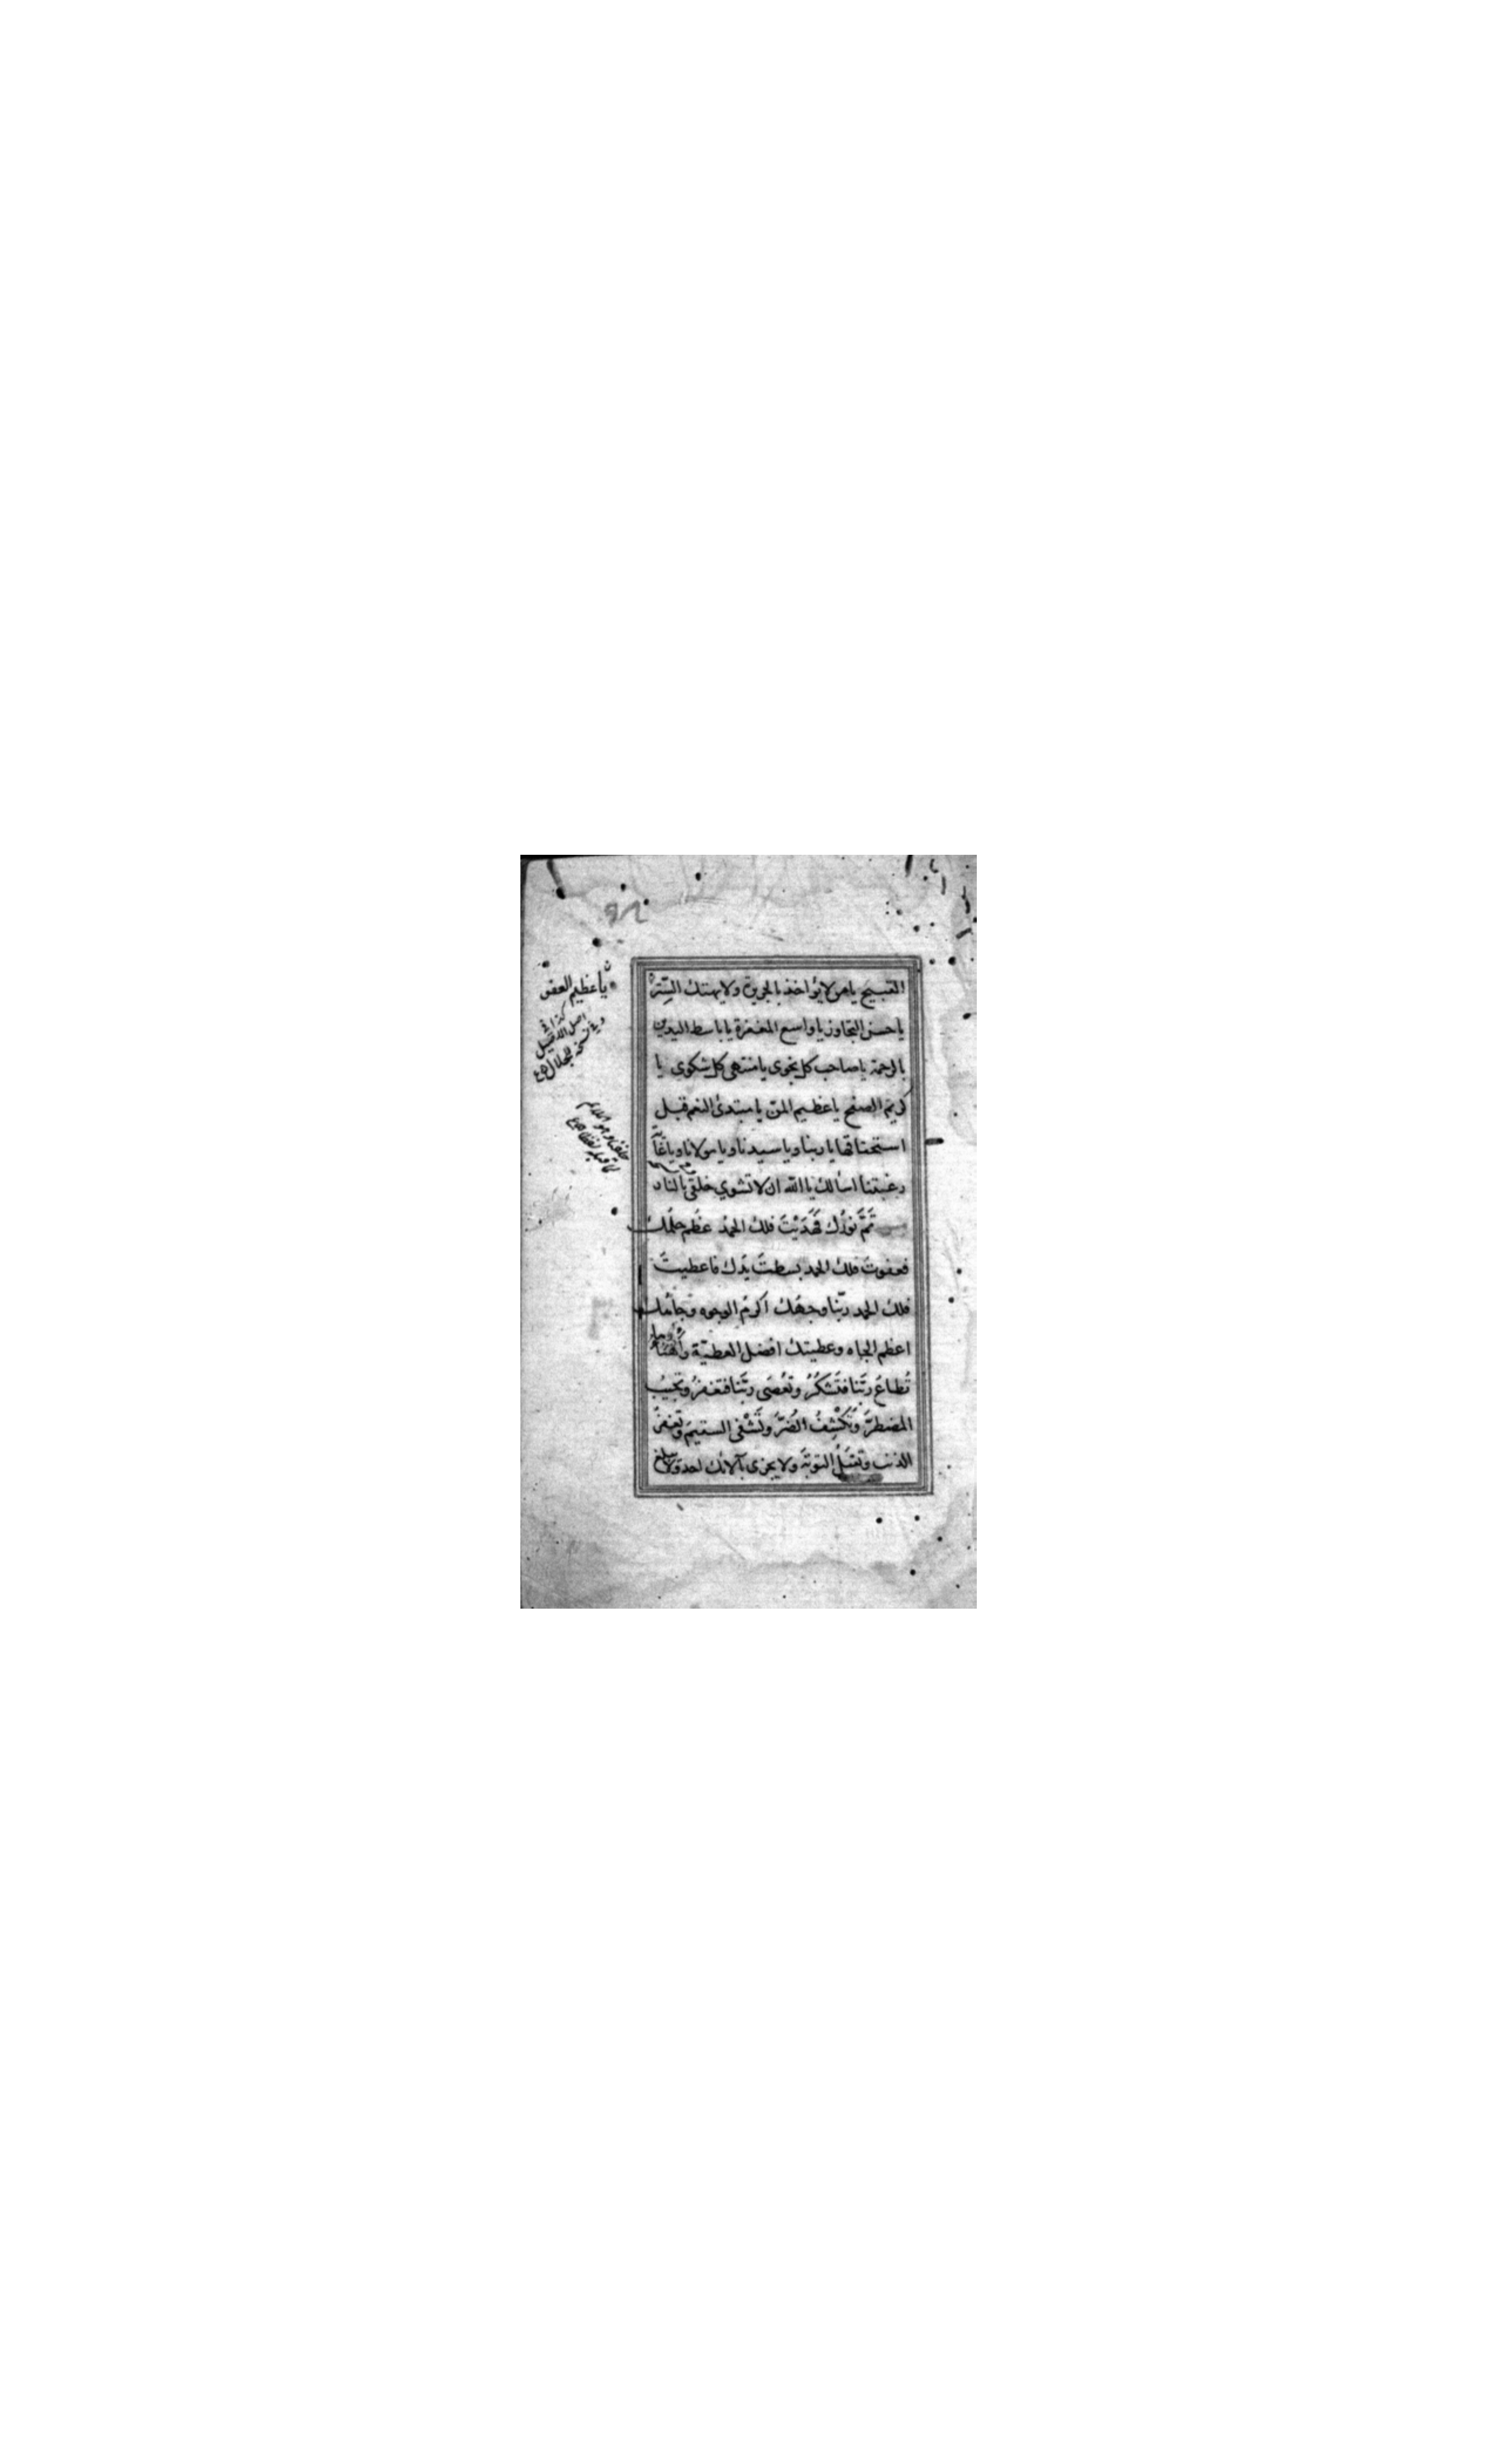 القبيح يا من لا يؤاخذ بالجريرة ولا يهتك الستر
يا حسن التجاوز يا واسع المغفرة يا باسط اليدين
بالرحمة يا صاحب كل نجوى يا منتهى كل شكوى يا
كريم الصفح يا عظيم المنّ يا مبتدئ النعم قبل
استحقاقها يا ربنا ويا سيدنا ويا مولانا ويا غاية
رغبتنا اسألك يا الله ان لا تشوي خلقي بالنار
تَمَّ نورُك فَهَدَيْتَ فلك الحمدُ عَظُم حِلْمُك
فعفوتَ فلك الحمد بسطتَ يَدَك فاعطيتَ
فلك الحمد ربّنا وجهُك اكرمُ الوجوه وجاهُك
اعظم الجاه وعطيتك افضل العطيّة وأهنَاُها
تُطاعُ ربَّنا فتَشكُرُ وتُعْصَى ربَّنا فتغفرُ وتُجيبُ
المضطرَّ وتَكْشِفُ الضُرَّ وتَشْفى السقيمَ وتغفرُ
الذنب وتَقبَلُ التوبَة ولا يجزى بآلائك احد ولا يبلغ
يا عظيم العفو
كذا في
اصل الاصيل
وفي نسخة